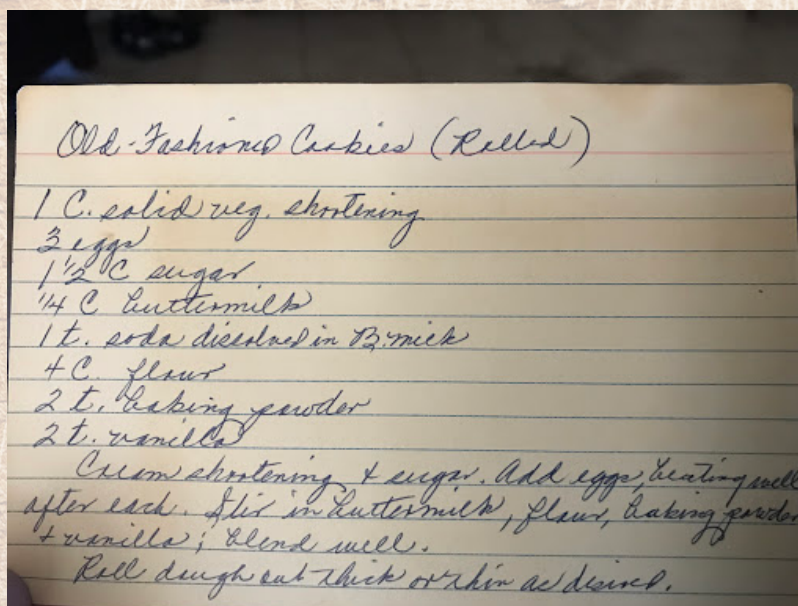 Old-Fashioned Cookies (Rolled)
1 C. solid veg. shortening
3 eggs
1 1/2 C sugar
1/4 C buttermilk
1 t. soda dissolved in B. milk
4 C. flour
2 t. baking powder
2 t. vanilla
Cream shortening & sugar. Add eggs, beating well
after each. Stir in buttermilk, flour, baking powder
& vanilla; blend well.
Roll dough out thick or thin as desired.